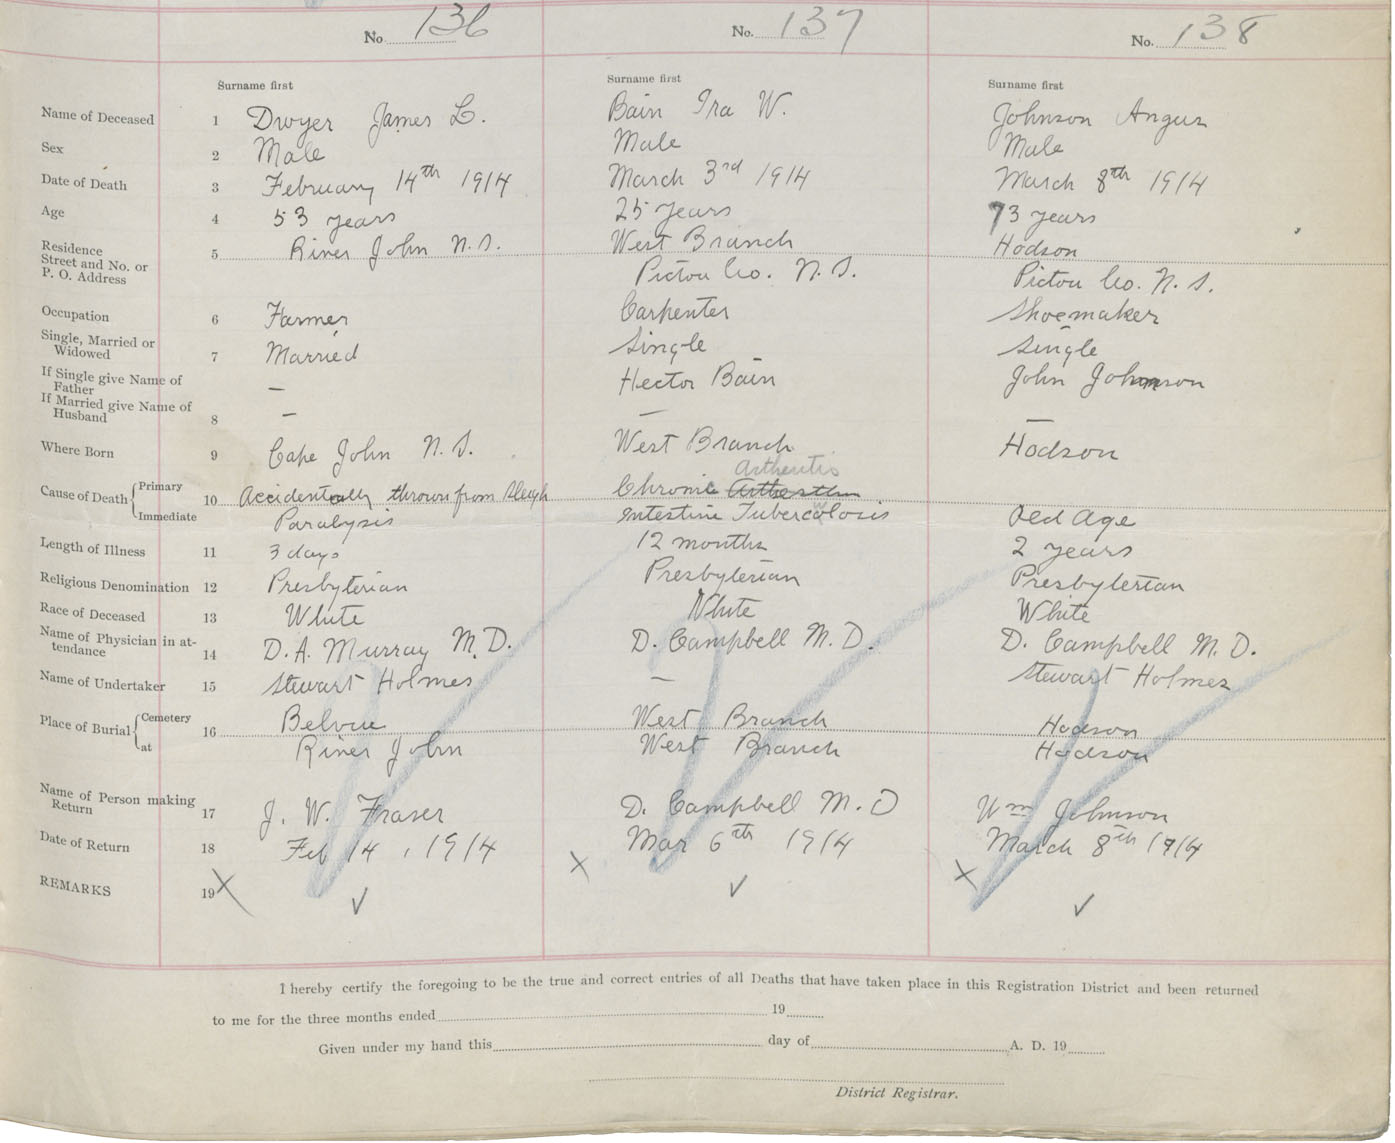 No. 136 No. 137 No. 138
Surname first Surname first Surname first
Name of Deceased 1 Dwyer James L. Bain Ira W. Johnson Angus
Sex 2 Male Male Male
Date of Death 3 February 14th 1914 March 3rd 1914 March 8th 1914
Age 4 53 years 25 years 73 years
Residence
Street and No. or 5 River John N.S. West Branch Hodson
P. O. Address Pictou Co. N.S. Pictou Co. N.S.
Occupation 6 Farmer Carpenter Shoemaker
Single, Married or
Widowed 7 Married Single Single
If Single give Name of
Father — Hector Bain John Johnson
If Married give Name of
Husband 8 — — —
Where Born 9 Cape John N.S. West Branch Hodson
Arthentis
Cause of Death Primary 10 Accidentally thrown from Sleigh Chronic
Immediate Paralysis Intestine Tuberculosis Old Age
Length of Illness 11 3 days 12 months 2 years
Religious Denomination 12 Presbyterian Presbyterian Presbyterian
Race of Deceased 13 White White White
Name of Physician in at-
tendance 14 D.A. Murray M.D. D. Campbell M.D. D. Campbell M.D.
Name of Undertaker 15 Stewart Holmes — Stewart Holmes
Place of Burial Cemetery 16 Belvue West Branch Hodson
at River John West Branch Hodson
Name of Person making
Return 17 J. W. Fraser D. Campbell M.D Wm Johnson
Date of Return 18 Feb 14, 1914 Mar 6th 1914 March 8th 1914
REMARKS 19 X ✓ X ✓ X ✓
I hereby certify the foregoing to be the true and correct entries of all Deaths that have taken place in this Registration District and been returned
to me for the three months ended 19
Given under my hand this day of A. D. 19
District Registrar.